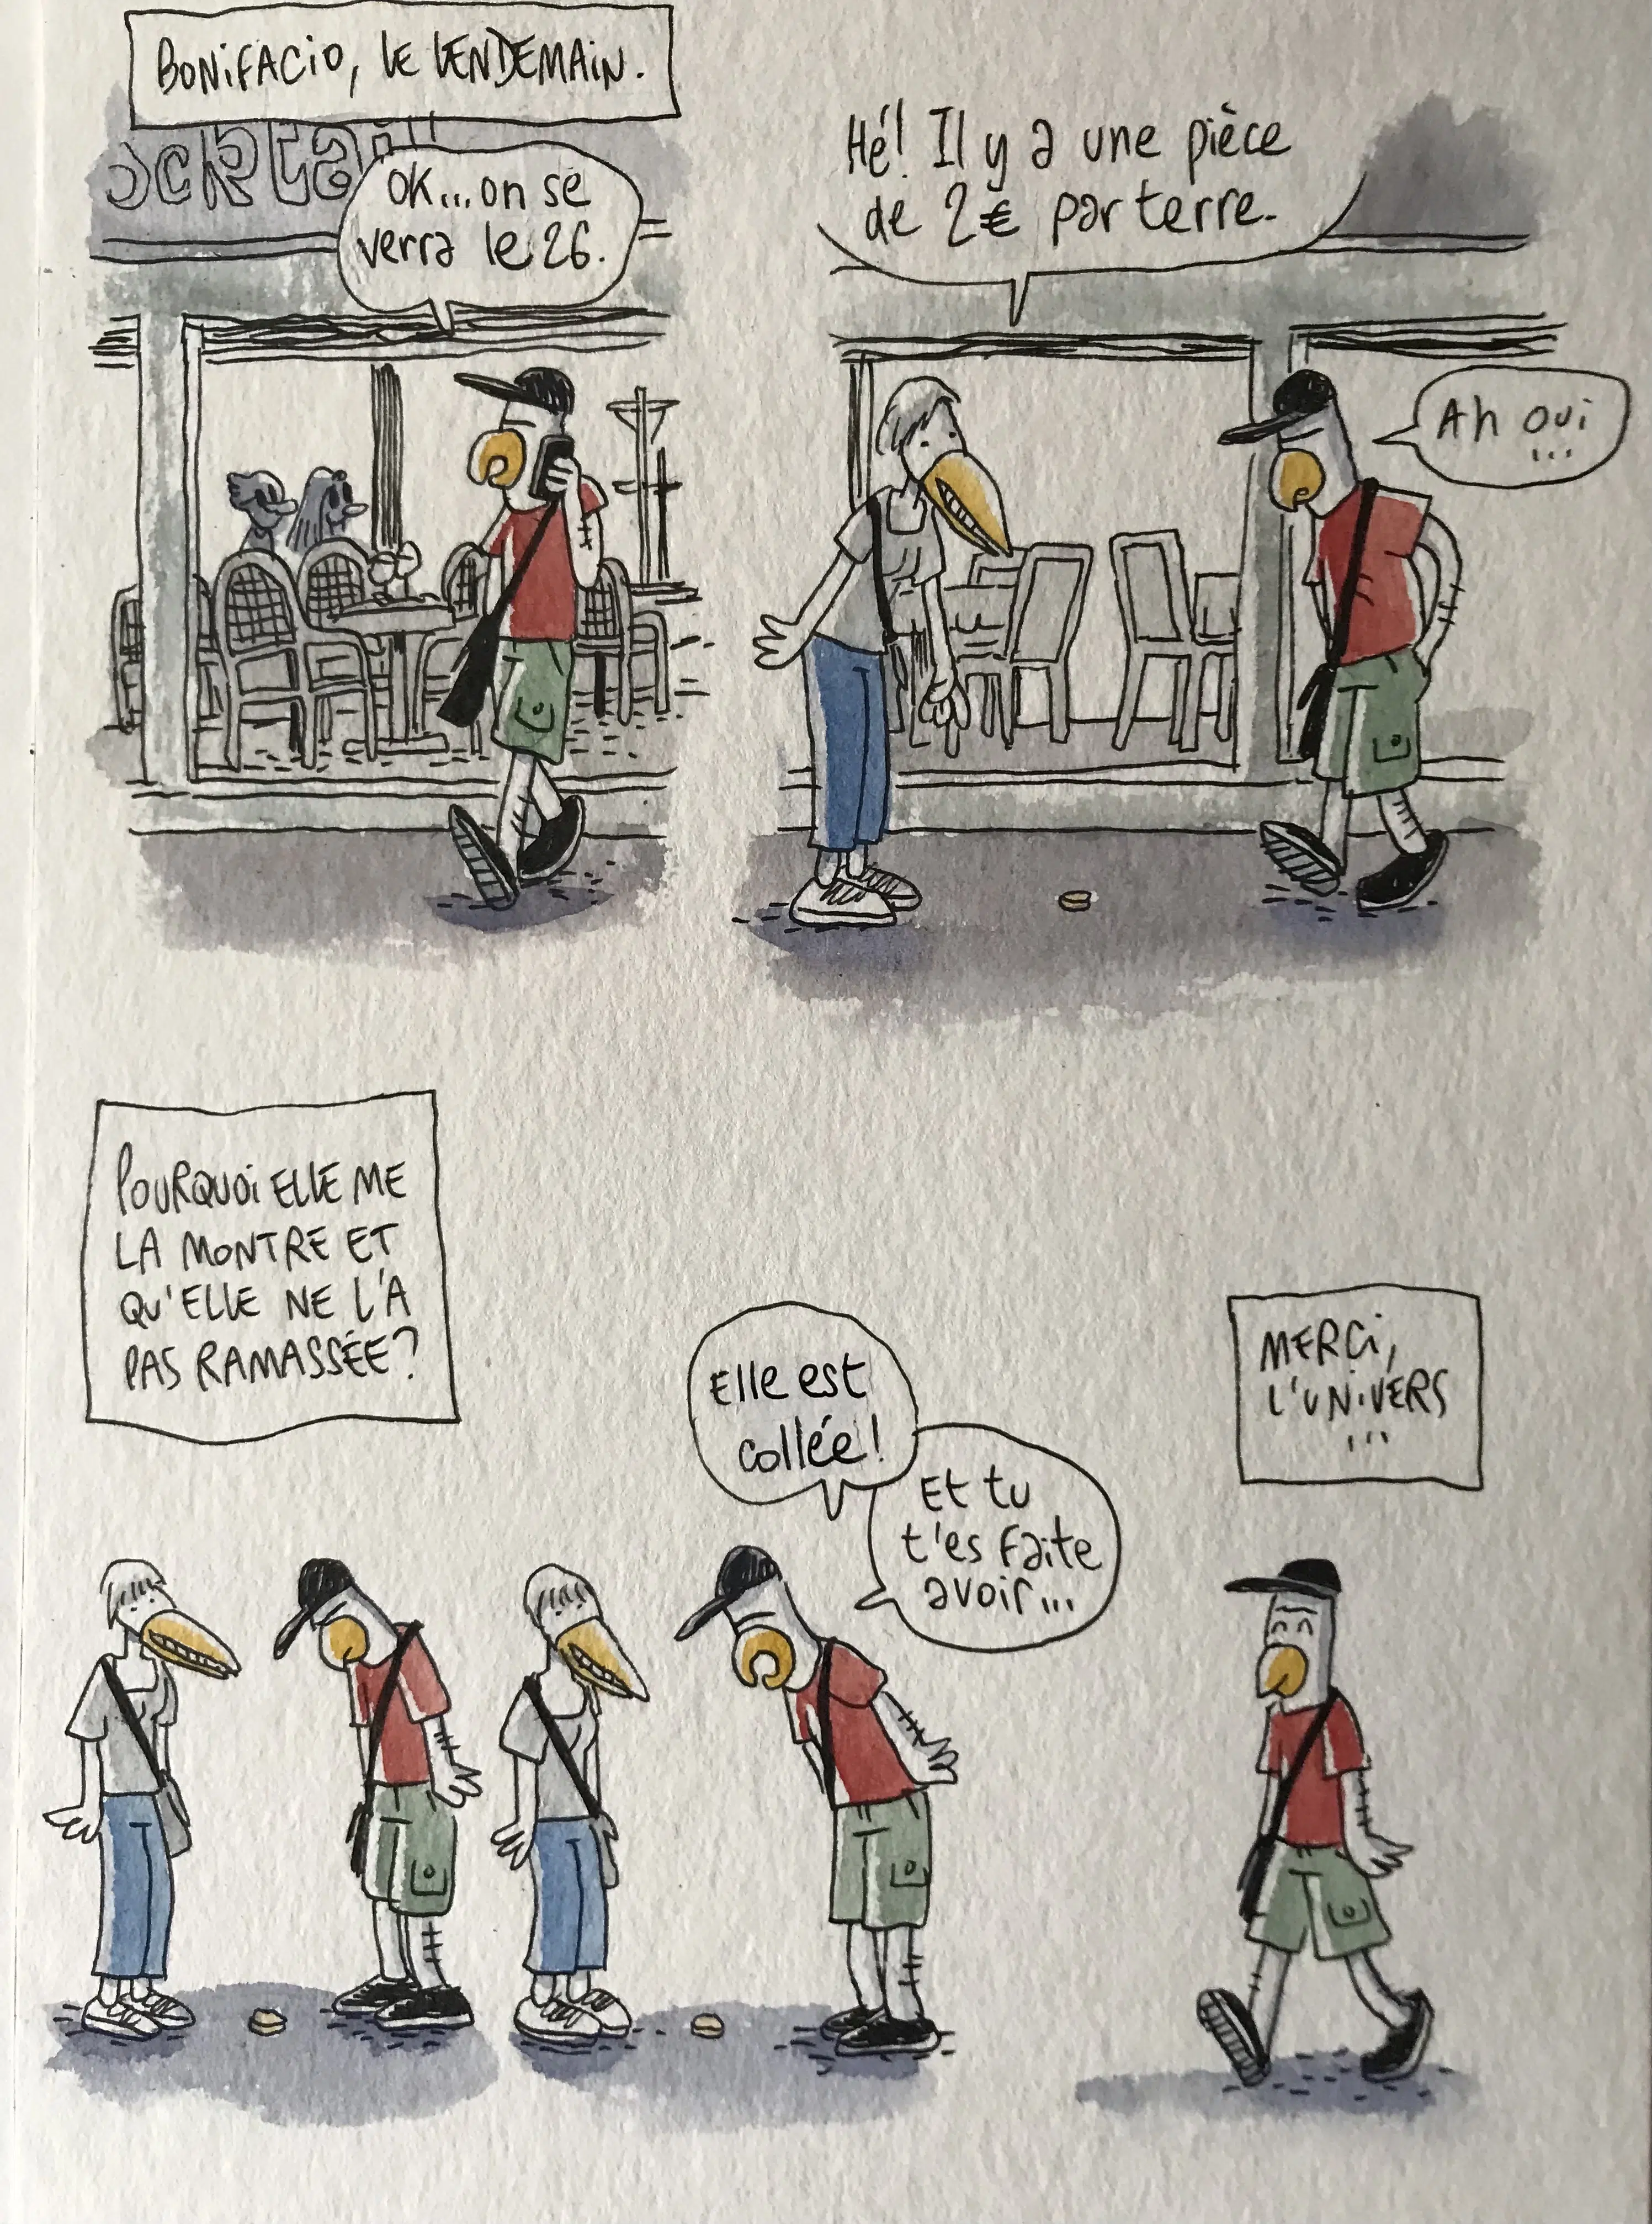 BONIFACIO, LE LENDEMAIN.
OK...on se
verra le 26.
Hé! Il y a une pièce
de 2€ par terre.
Ah oui
...
POURQUOI ELLE ME
LA MONTRE ET
QU'ELLE NE L'A
PAS RAMASSÉE?
Elle est
collée!
Et tu
t'es faite
avoir...
MERCI,
L'UNIVERS
...